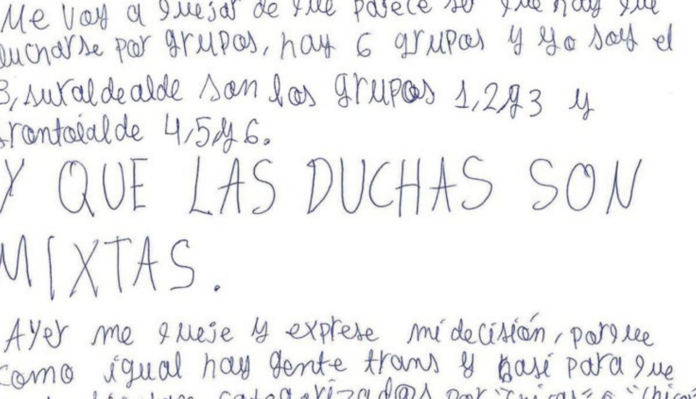 Me voy a quejar de que parece ser que hay que
ducharse por grupos, hay 6 grupos y yo soy el
3, sutaldealde son los grupos 1,2y3 y
frontoialde 4,5y6.
Y QUE LAS DUCHAS SON
MIXTAS.
Ayer me queje y exprese mi decisión, porque
como igual hay gente trans y para que
categorizad@s por "chicas" o "chicos